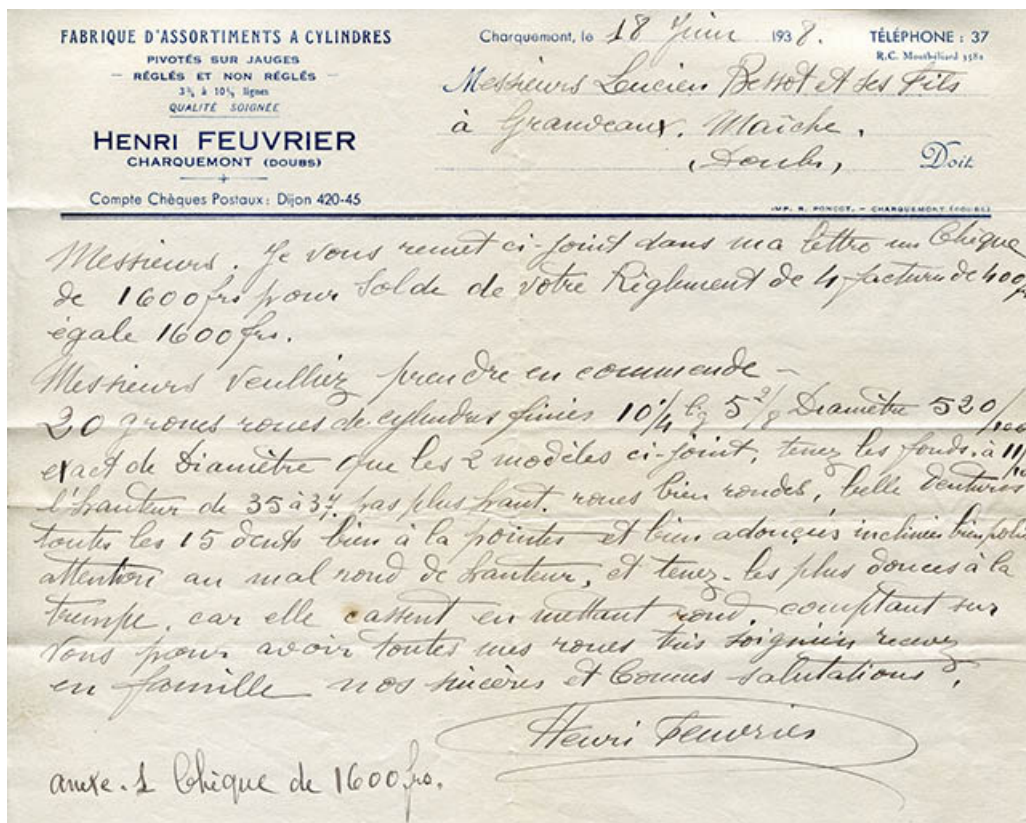 FABRIQUE D'ASSORTIMENTS A CYLINDRES
PIVOTÉS SUR JAUGES
— RÉGLÉS ET NON RÉGLÉS —
3¾ à 10½ lignes
QUALITÉ SOIGNÉE
HENRI FEUVRIER
CHARQUEMONT (DOUBS)
Compte Chèques Postaux : Dijon 420-45
Charquemont, le 18 Juin 1938.
TÉLÉPHONE : 37
R.C. Montbéliard 3581
Messieurs Lucien Bessot et ses Fils
à Grandeaux. Maîche.
(Doubs) Doit
IMP. R. PONCOT. — CHARQUEMONT (DOUBS)
Messieurs. Je vous remet ci-joint dans ma lettre un Chèque
de 1600 frs pour Solde de votre Règlement de 4 facture de 400 frs
égale 1600 frs.
Messieurs veulliez prendre en commende —
20 groses roues de cylindres finies 10 1/4 lig 5 2/8 Diamètre 520/100
exact de Diamètre que les 2 modèles ci-joint, tenez les fonds à 11/100
l'hauteur de 35 à 37. pas plus haut. roues bien rondes, belle dentures
toutes les 15 dents bien à la pointes et bien adoucies inclinées bien polies
attention au mal rond de hauteur, et tenez-les plus douces à la
trempe, car elle cassent en mettant rond, comptant sur
Vous pour avoir toutes mes roues très soignées recevez
en famille nos sincères et bonnes salutations.
Henri Feuvrier
anexe. 1 Chèque de 1600 frs.